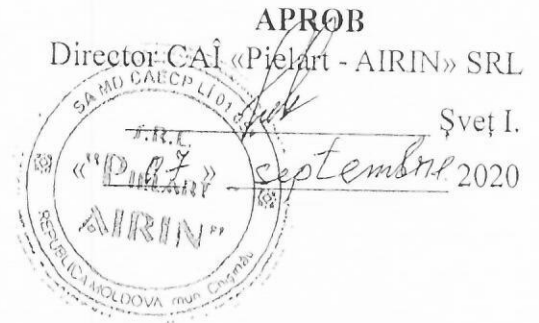 APROB
Director CAÎ «Pielart - AIRIN» SRL
Șveț I.
«07» septembrie 2020
SA MD CAECP LÎ 01
S.R.L.
"PIELART
AIRIN"
REPUBLICA MOLDOVA mun. Chişinău